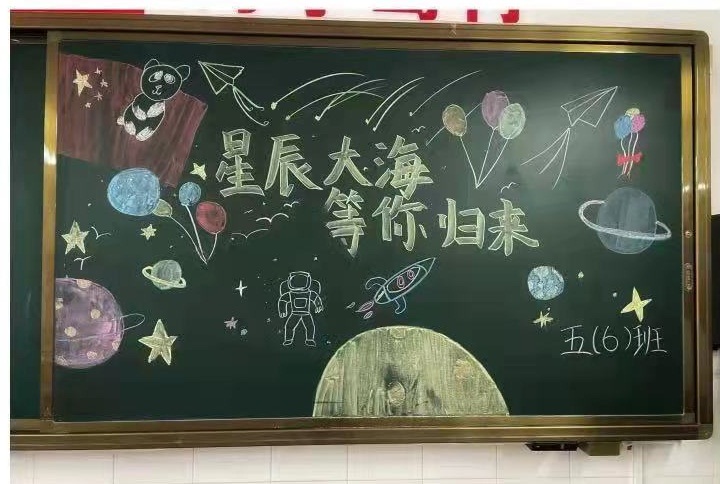 星辰大海
等你归来
五(6)班